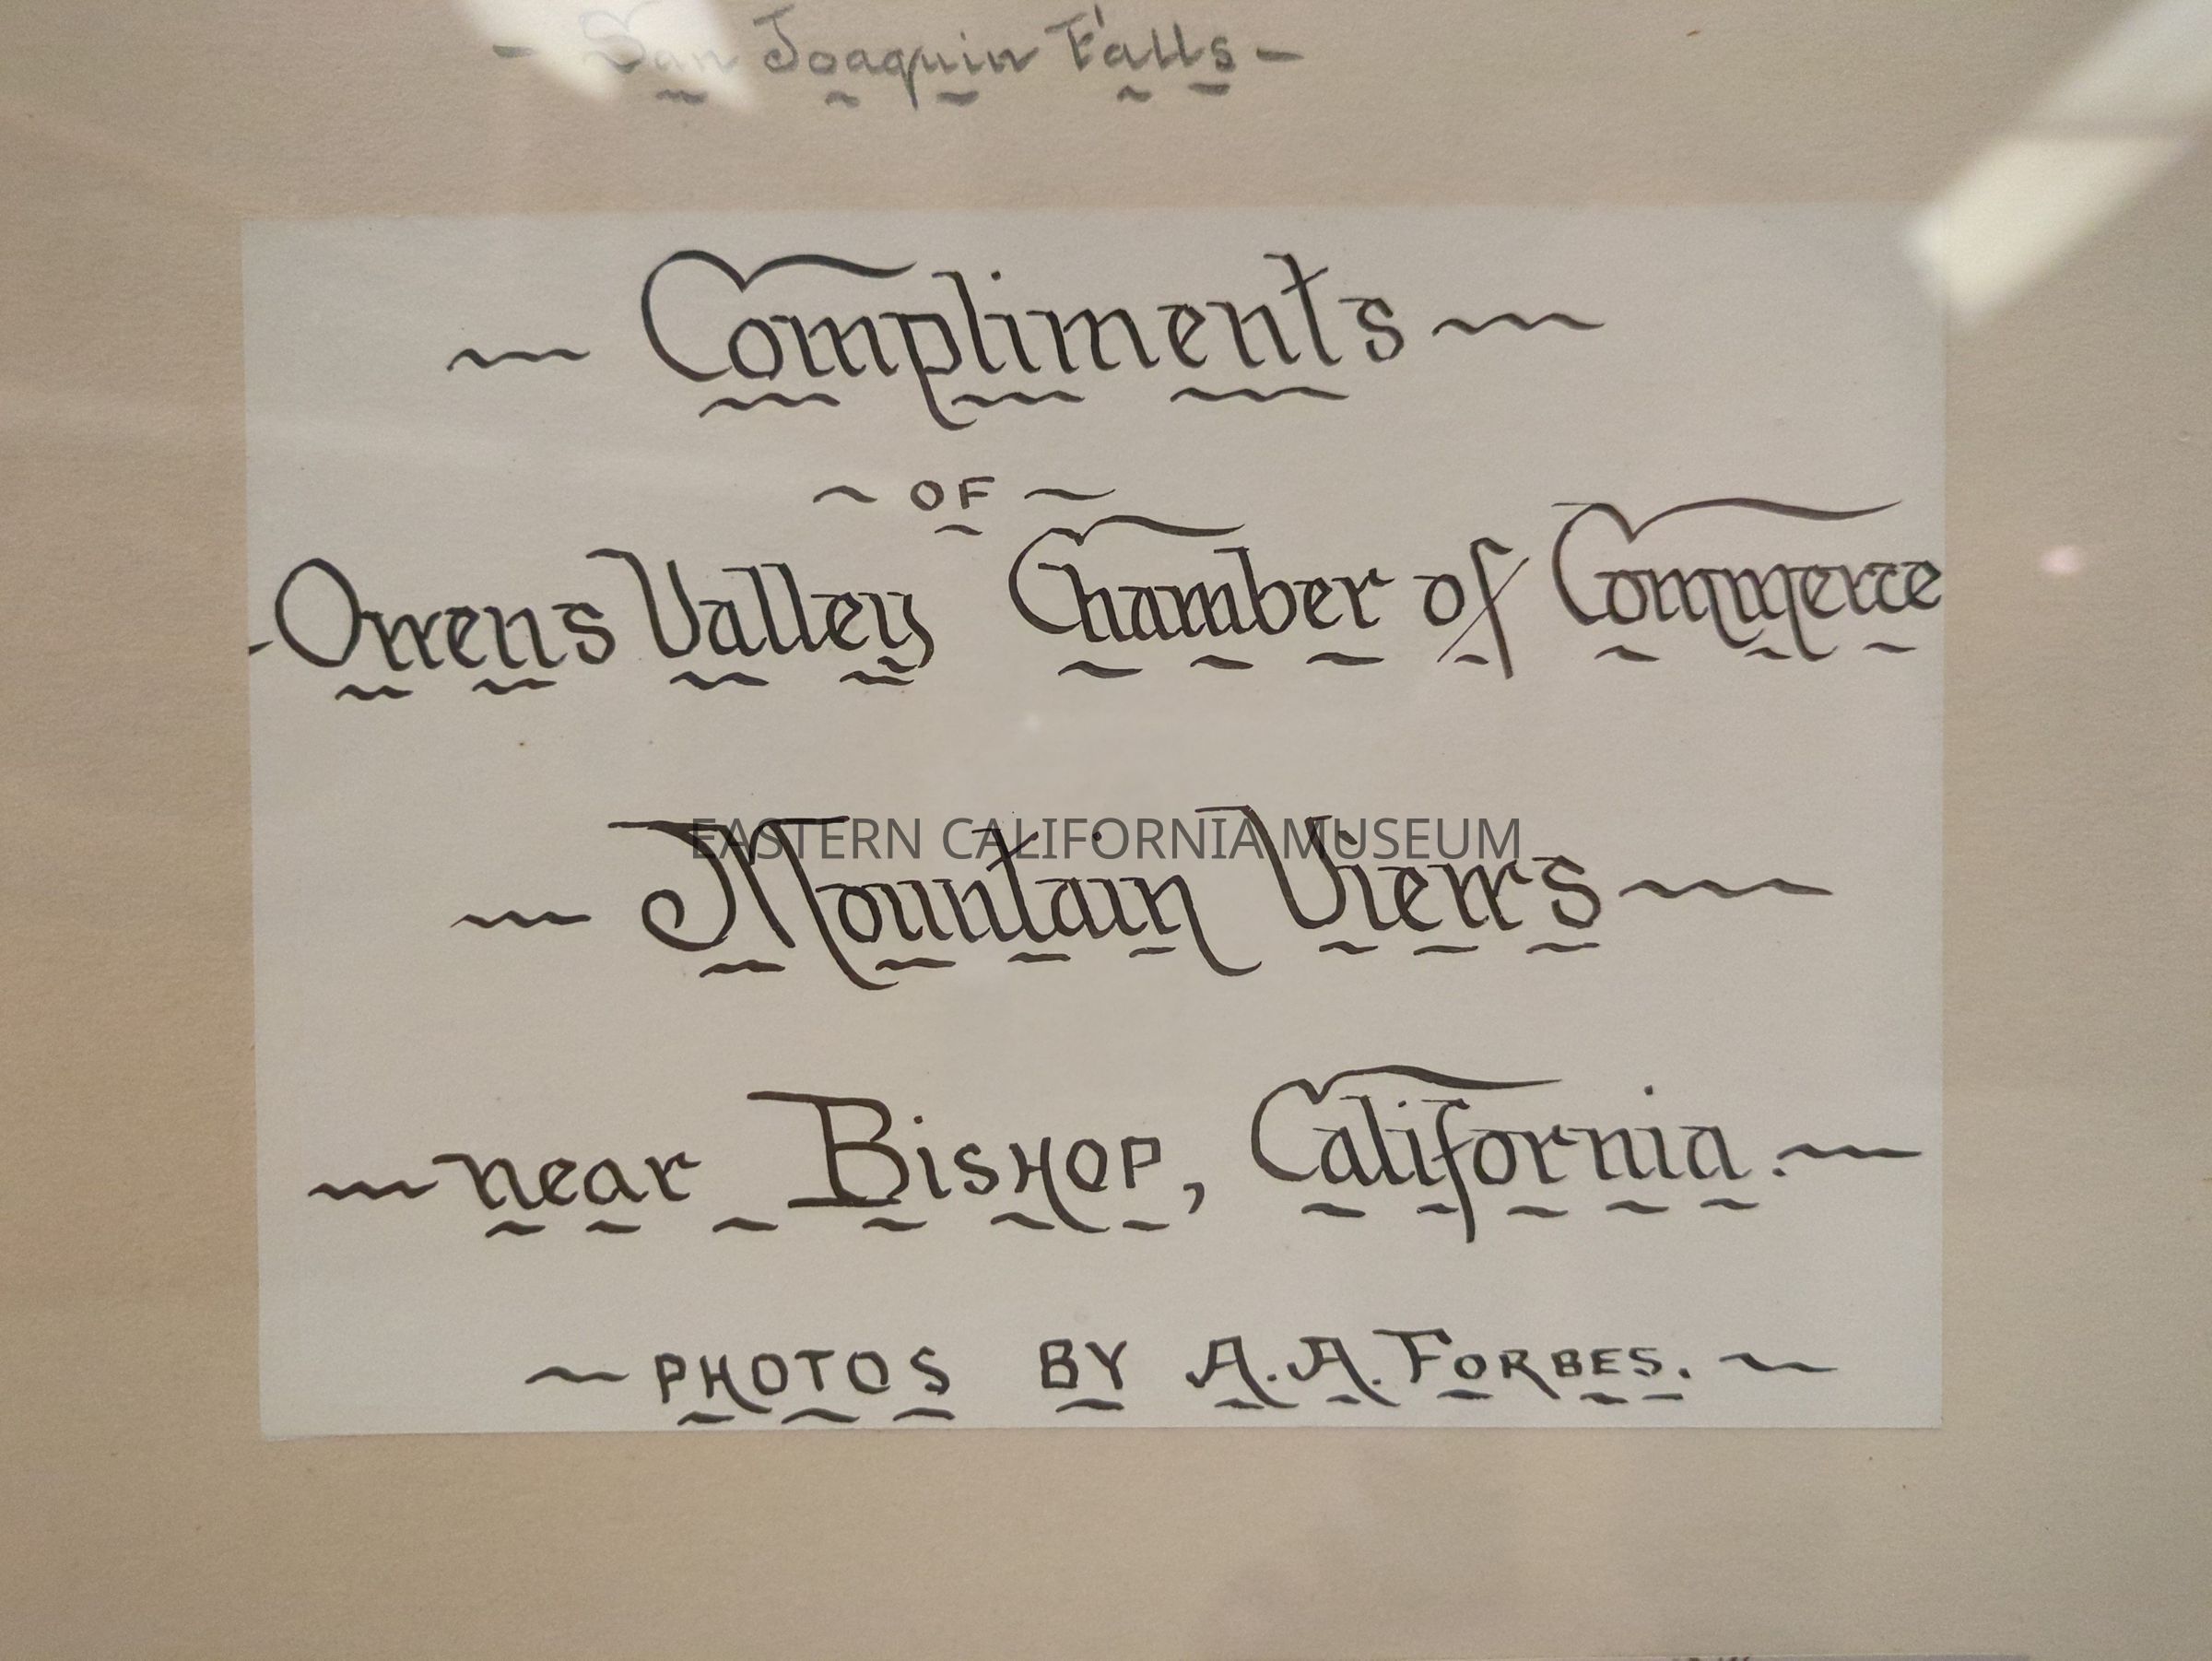 - San Joaquin Falls -
~ Compliments ~
~ OF ~
- Owens Valley Chamber of Commerce
EASTERN CALIFORNIA MUSEUM
~ Mountain Views ~
~ near BISHOP, California. ~
~ PHOTOS BY A. A. FORBES. ~